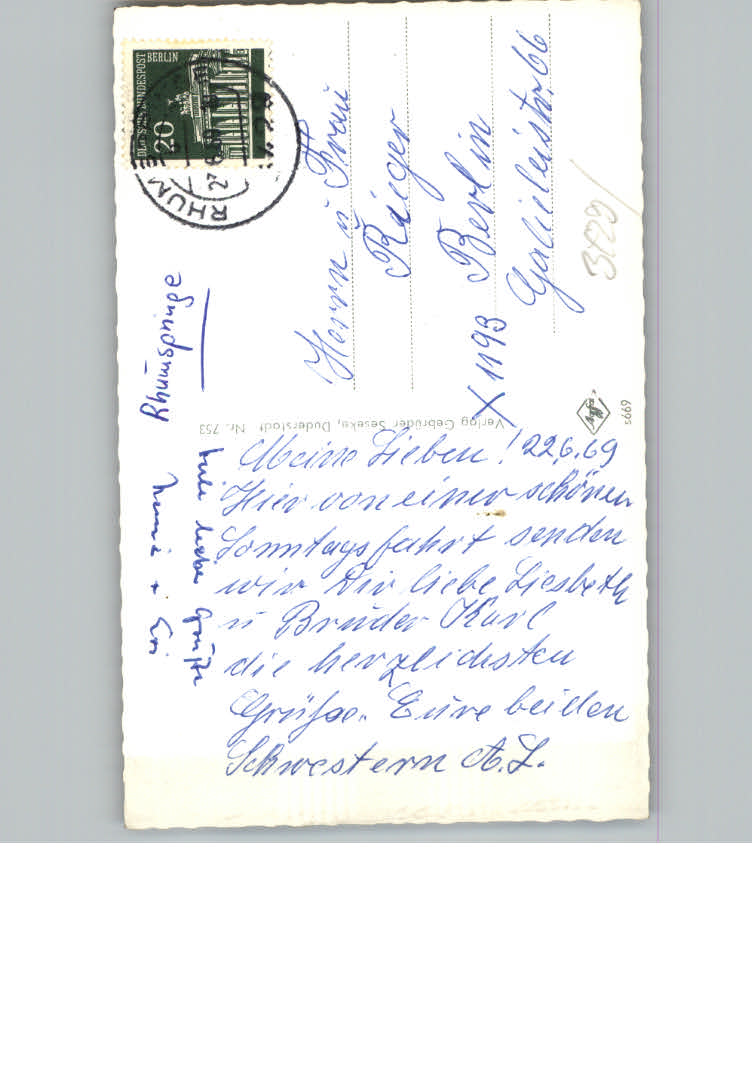 Meine Lieben! 22.6.69
Hier von einer schönen
Sonntagsfahrt senden
wir Dir liebe Liesbeth
u Bruder Karl
die herzlichsten
Grüße. Eure beiden
Schwestern A. L.
liebe Grüße
Rhumspringe
Verlag Gebrüder Seseke, Duderstadt Nr. 753
DEUTSCHE BUNDESPOST BERLIN
20
RHUM
Herrn u Frau
Rieger
X 1193 Berlin
Galileistr. 66
s669